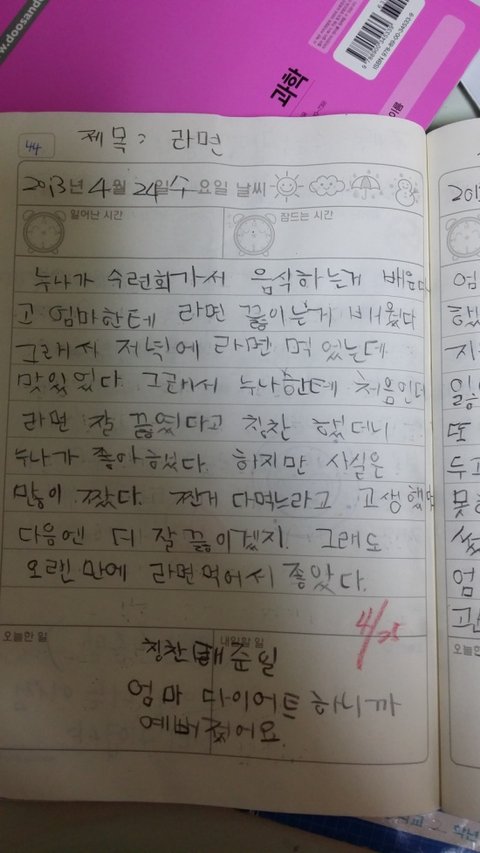 www.doosand
과학
ISBN 978-89-00-34533-9
이름
44
제목: 라면
2013년 4월 24일 수요일 날씨
일어난 시간
잠드는 시간
누나가 수련회가서 음식하는게 배운다
고 엄마한테 라면 끓이는게 배웠다
그래서 저녁에 라면 먹었는데
맛있었다 그래서 누나한테 처음인데
라면 잘 끓였다고 칭찬 했더니
누나가 좋아했다. 하지만 사실은
많이 짰다. 짠게 다먹느라고 고생했
다음엔 더 잘끓이겠지. 그래도
오랜만에 라면먹어서 좋았다.
4/25
오늘한 일
내일할 일
칭찬해준일
엄마 다이어트하니까
예뻐졌어요
201
엄
했
지
일
또
두고
못
썼
엄
오늘한